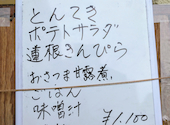 とんてき
ポテトサラダ
蓮根きんぴら
おさつま甘露煮
ごはん
味噌汁
¥1,100